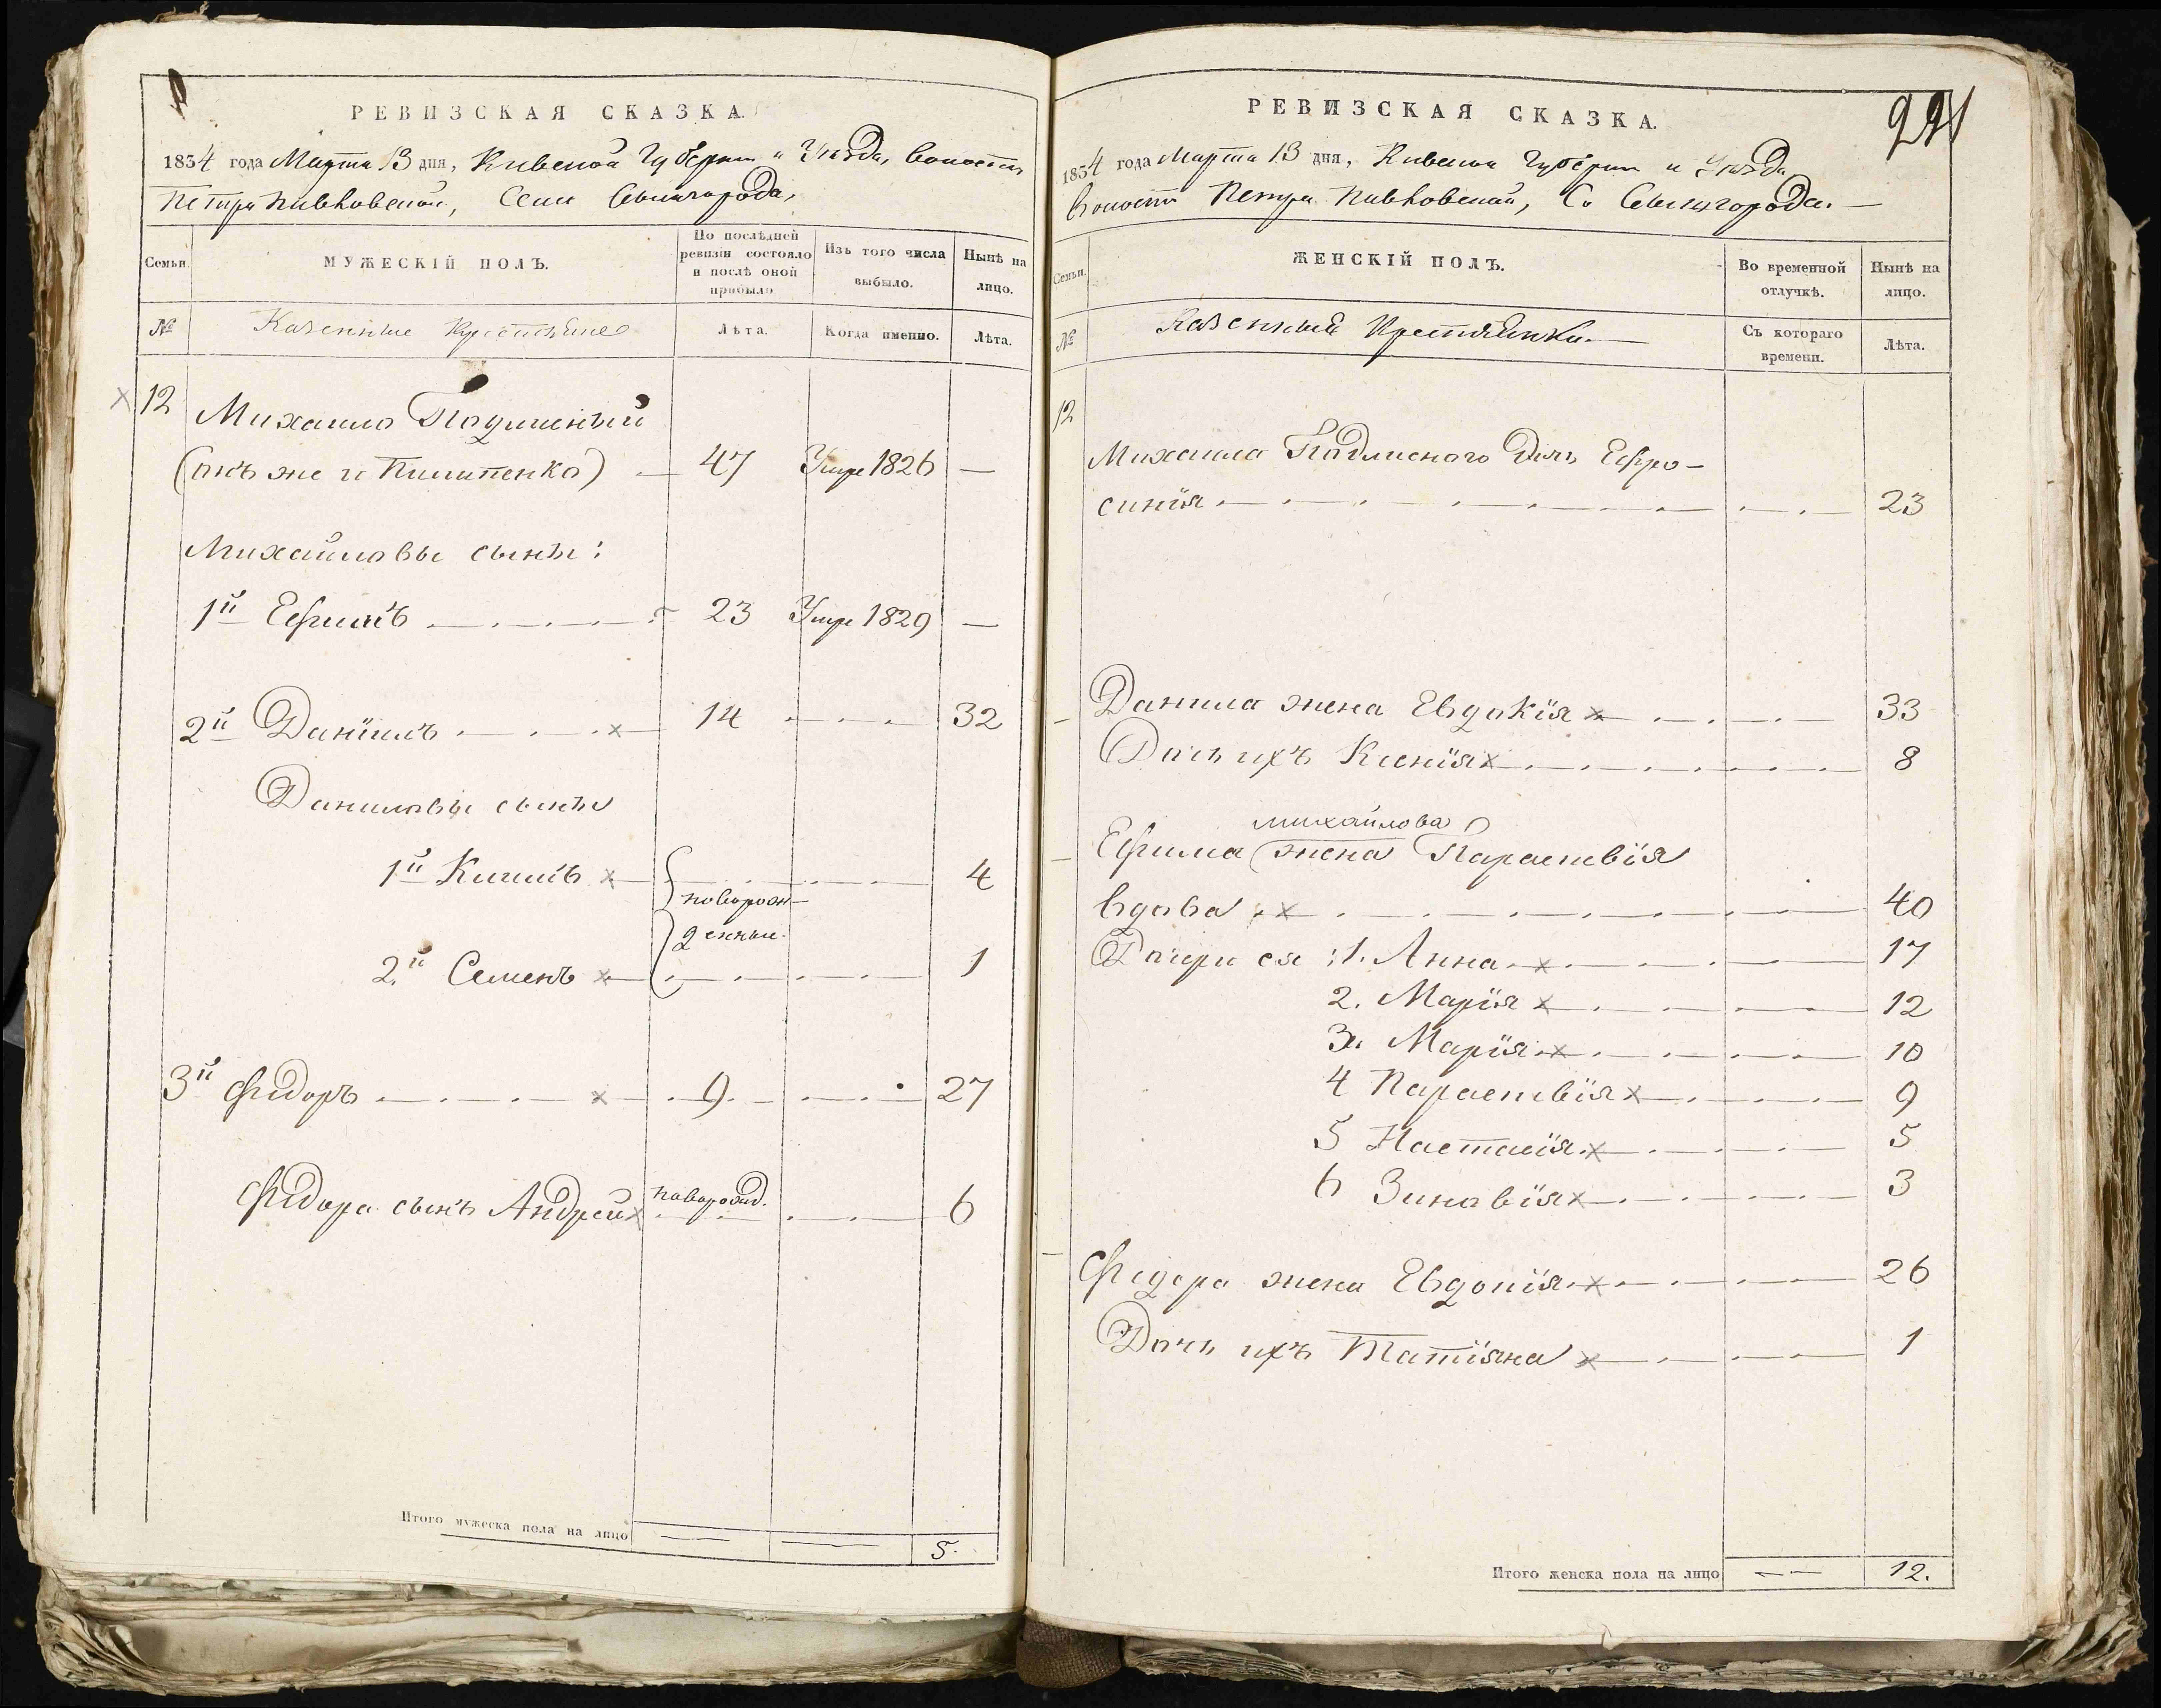 РЕВИЗСКАЯ СКАЗКА.
1834 года Марта 13 дня, Кивской Губернии и Уезда, Волости
Петро Пивковской, Села Свиногорода,
Семьи.
МУЖЕСКІЙ ПОЛЪ.
По послѣдней ревизіи состояло и послѣ оной прибыло
Изъ того числа выбыло.
Нынѣ на лицо.
№
Казенные Крестьяне
Лѣта.
Когда именно.
Лѣта.
12 Михаило
(онъ же и Пилипенко) — 47 Умре 1826 —
Михайловы сыны:
1й Ефимъ 23 Умре 1829 —
2й Даніилъ х 14 32
Даниловы сыны
1й х 4
новорож-
денные.
2й Семенъ х 1
3й Фидоръ х 9 27
Фидора сынъ Андрей х новорожд. 6
Итого мужеска пола на лицо 5.
РЕВИЗСКАЯ СКАЗКА.
291
1834 года Марта 13 дня, Кивской Губернии и Уезда
Волости Петро Пивковской, С. Свиногорода.—
Семьи.
ЖЕНСКІЙ ПОЛЪ.
Во временной отлучкѣ.
Нынѣ на лицо.
№
Казенные Крестьянки.—
Съ котораго времени.
Лѣта.
12
Михаила дочь Ефро-
синія 23
Данила жена Евдокія х 33
Дочь ихъ Ксенія х 8
михайлова
Ефима жена Параскевія
вдова х 40
Дочери ея: 1. Анна х 17
2. Марія х 12
3. Марія х 10
4 Параскевія х 9
5 Настасія х 5
6 Зиновія х 3
Федора жена Евдокія х 26
Дочь ихъ Татіяна х 1
Итого женска пола на лицо 12.